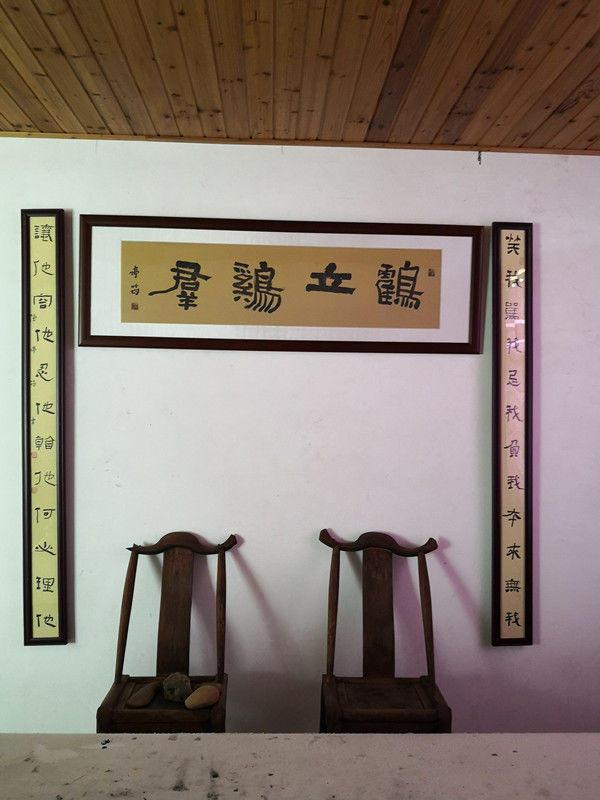 鶴立鷄羣
笑我罵我忌我負我本來無我
讓他容他忍他他何必理他